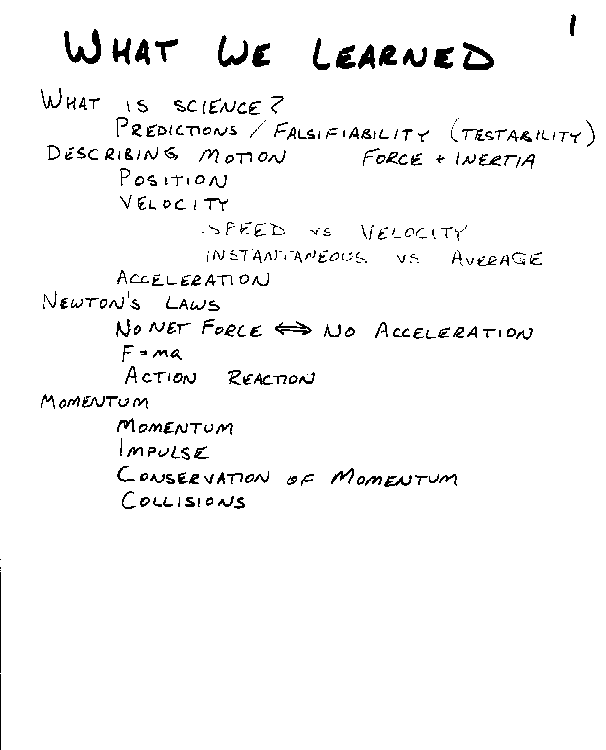 1
WHAT WE LEARNED
WHAT IS SCIENCE?
PREDICTIONS / FALSIFIABILITY (TESTABILITY)
DESCRIBING MOTION FORCE + INERTIA
POSITION
VELOCITY
SPEED VS VELOCITY
INSTANTANEOUS VS AVERAGE
ACCELERATION
NEWTON'S LAWS
NO NET FORCE ⟺ NO ACCELERATION
F = ma
ACTION REACTION
MOMENTUM
MOMENTUM
IMPULSE
CONSERVATION OF MOMENTUM
COLLISIONS